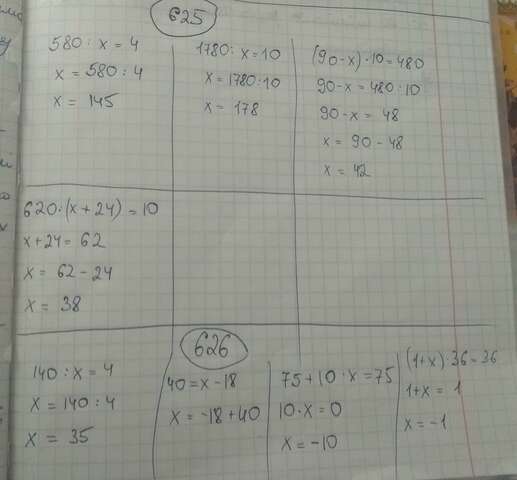 625
580 : x = 4
x = 580 : 4
x = 145
1780 : x = 10
x = 1780 · 10
x = 178
(90 - x) · 10 = 480
90 - x = 480 : 10
90 - x = 48
x = 90 - 48
x = 42
620 · (x + 24) = 10
x + 24 = 62
x = 62 - 24
x = 38
626
140 : x = 4
x = 140 : 4
x = 35
40 = x - 18
x = -18 + 40
75 + 10 · x = 75
10 · x = 0
x = -10
(1 + x) 36 = 36
1 + x = 1
x = -1